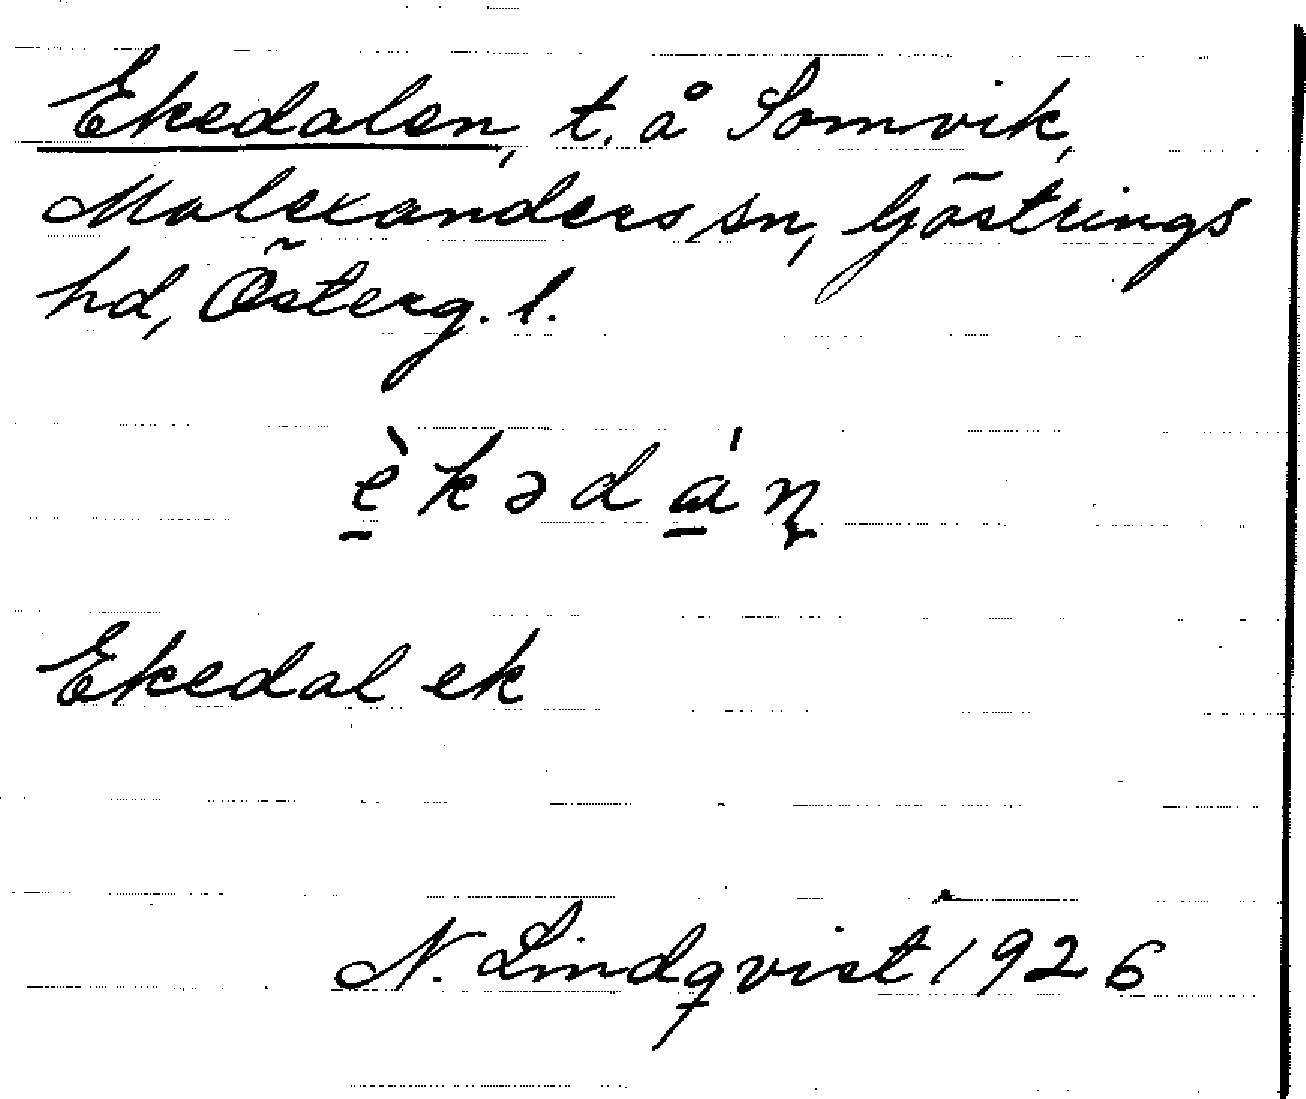 Ekedalen, t. å Somvik,
Malexanders sn, Göstrings
hd, Österg. l.
è̲kədá̲ɳ
Ekedal ek
N. Lindqvist 1926